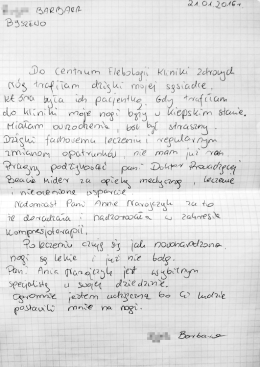 Barbara 21.01.2016r
Byszewo
Do Centrum Flebologii Kliniki Zdrowych
Nóg trafiłam dzięki mojej sąsiadce,
która była ich pacjentką. Gdy trafiłam
do kliniki moje nogi były w kiepskim stanie.
Miałam owrzodzenia, ból był straszny.
Dzięki fachowemu leczeniu i regularnym
zmianom opatrunków, nie mam już ran.
Pragnę podziękować pani Doktor Prowadzącej
Beacie Kider za opiekę medyczną, leczenie
i nieocenione wsparcie.
Natomiast Pani Annie za to
że doradzała i nadzorowała w zakresie
kompresjoterapii.
Po leczeniu czuję się jak nowonarodzona
nogi są lekkie i już nie bolą.
Pani Ania jest wybitnym
specjalistą w swojej dziedzinie.
Ogromnie jestem wdzięczna bo Ci ludzie
postawili mnie na nogi.
Barbara